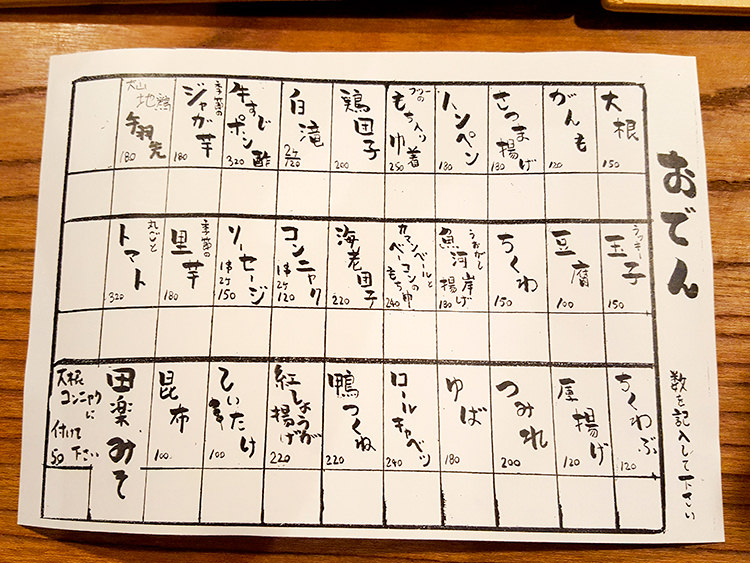 おでん
数を記入して下さい
大根
150
がんも
180
さつま揚げ
180
ハンペン
180
もち入り
巾着
250
鶏団子
200
白滝
2ケ
120
牛すじ
ポン酢
320
季節の
ジャガ芋
180
大山
地鶏
180
ラッキー
玉子
150
豆腐
100
ちくわ
150
うおがし
魚河岸
揚げ
180
カマンベールと
ベーコンの
もち巾
240
海老団子
220
コンニャク
1串
2ケ
120
ソーセージ
1串
2ケ
150
季節の
里芋
180
丸ごと
トマト
320
ちくわぶ
120
厚揚げ
120
つみれ
200
ゆば
180
ロール
キャベツ
240
鴨つくね
220
紅しょうが
揚げ
220
しいたけ
100
昆布
100
田楽みそ
大根
コンニャクに
付けて
下さい
50